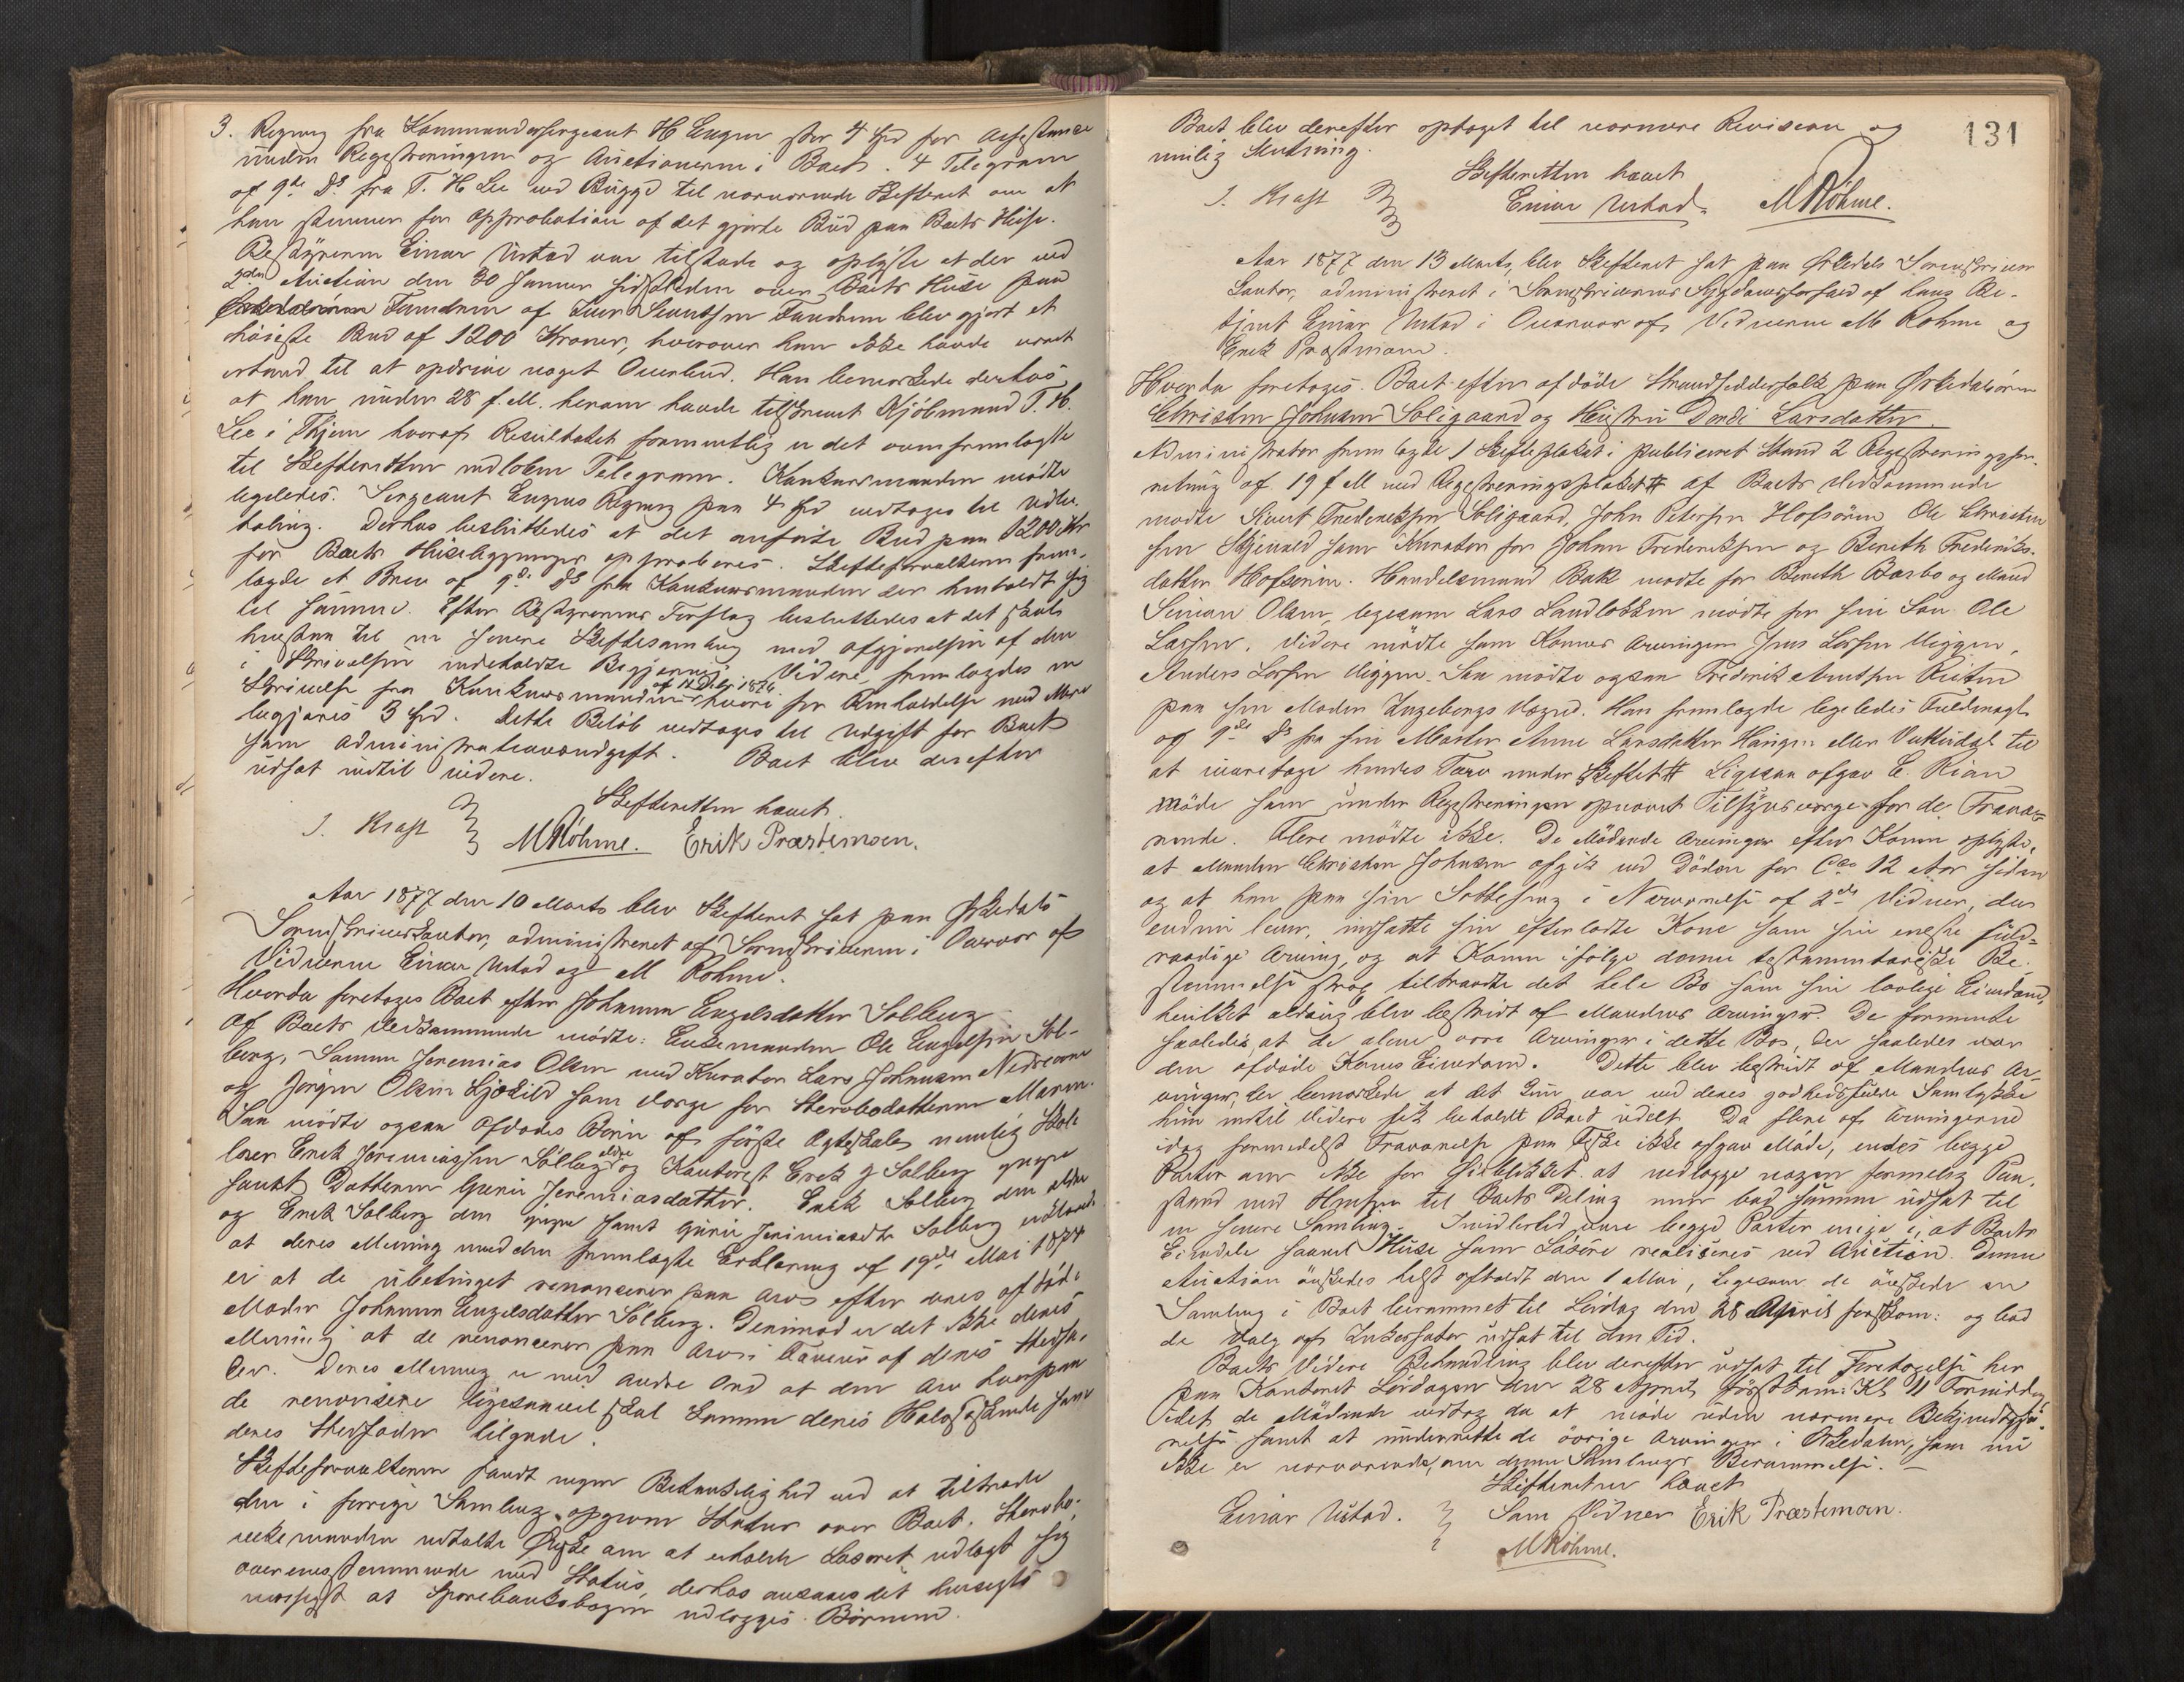 3. Regning fra Kommandersergeant H Engen stor 4 Spd for Assistance
under Registreringen og Auctionerne i Boet. 4 Telegram
af 9de Ds fra T. H Lee ved Bugge til nærværende Skifteret om at
han stemmer for Approbation af det gjorte Bud paa Boets Huse.
Bestyreren Einar Ustad var tilstede og oplyste at der ved
2den Auction den 30 Januar sidstleden over Boets Huse paa
af Iver Sivertsen blev gjort et
høieste Bud af 1200 Kroner, hvorover han ikke havde været
istand til at opdrive noget Overbud. Han bemærkede derhos
at han under 28 f. M. herom havde tilskrevet Kjøbmand T. H.
Lee i Thjem hvoraf Resultatet formentlig er det ovenfremlagte
til Skifteretten indløbne Telegram. Konkursmanden mødte
ligeledes. Sergeant Engens Regning paa 4 Spd vedtoges til Udbe-
taling. Derhos besluttedes at det anførte Bud paa 1200 Kr
for Boets Husebygninger approberes. Skifteforvalteren frem-
lagde et Brev af 9de Ds fra Konkursmanden der henholdt sig
til samme. Efter Bestyrerens Forslag besluttedes at det skulde
henstaa til en senere Skiftesamling med Afgjørelsen af den
i Skrivelsen indeholdte Begjæring. Videre fremlagdes en
Skrivelse fra Konkursmanden af 12 Debr 1876 hvori for Omkostelse med Mere
begjæres 3 Spd. Dette Beløb vedtoges til Udgift for Boet
som Administrationsudgift. Boet blev derefter
udsat indtil videre.
Skifteretten hævet.
J. Kraft MRöhme. Erik Præstmoen.
Aar 1877 den 10 Marts blev Skifteret sat paa Ørkedals
Sorenskriverkontor, administreret af Sorenskriveren i Overvær af
Vidnerne Einar Ustad og M Röhme.
Hvorda foretoges Boet efter Johanna Engelsdatter Solberg
Af Boets Vedkommende mødte: Enkemanden Ole Engelsen Sol-
berg, Sønnen Jeremias Olsen med Kurator Lars Johnsen Nedreaune
og Jørgen Olsen Ljøkild som Værge for Stervbodatteren Maren.
Saa mødte ogsaa Afdødes Børn af første Ægteskab nemlig Skole
lærer Erik Jeremiassen Solberg ældre og Kontorist Erik J Solberg yngre
samt Datteren Guru Jeremiasdatter. Erik Solberg den ældre
og Erik Solberg den yngre samt Guru Jeremiasdtr Solberg erklærede
at deres Mening med den fremlagte Erklæring af 19de Mai 1874
er at de ubetinget renoncerer paa Arv efter deres afdøde
Moder Johanna Engelsdatter Solberg. Derimod er det ikke deres
Mening at de renoncerer paa Arv i Faveur af deres Stedfa-
der. Deres Mening er med andre Ord at den Arv hvorpaa
de renoncere ligesaavel skal komme deres Halvsøskende som
deres Stedfader tilgode.
Skifteforvalteren fandt ingen Betænkelighed ved at tiltræde
den i forrige Samling opgivne Status over Boet. Stervbo-
enkemanden udtalte Ønske om at erholde Løsøret udlagt sig
overensstemmende med Status, derhos ansaaes det hensigts-
mæssigst at Sparebanksbogen udlægges Børnene.
131
Boet blev derefter optaget til nærmere Revision og
mulig Slutning.
Skifteretten hævet
J. Kraft Einar Ustad. MRöhme.
Aar 1877 den 13 Marts blev Skifteret sat paa Ørkedals Sorenskriver
kontor, administreret i Sorenskriverens Sygdomsforfald af hans Be-
tjent Einar Ustad i Overvær af Vidnerne M Röhme og
Erik Præstmoen.
Hvorda foretoges Boet efter afdøde Strandsidderfolk paa Ørkedalsøren
Christen Johnsen Soligaard og Hustru Dordi Larsdatter.
Administrator fremlagde 1 Skifteplakat i publiceret Stand 2 Registreringsfor-
retning af 19 f M med Registreringsplakat # Af Boets Vedkommende
mødte Sivert Frederiksen Soligaard, John Petersen Hofsøren Ole Christen
sen Skjenald som Kurator for Johan Frederiksen og Bereth Frederiks-
datter Hofsøren. Handelsmand Bak mødte for Bereth Bærbo og Mand
Simon Olsen, ligesom Lars Landløkken mødte for sin Søn Ole
Larsen. Videre mødte som Konens Arvinger Jens Larsen Viggen,
Anders Larsen Viggen. Saa mødte ogsaa Frederik Arntsen Risten
paa sin Moder Ingeborgs Vegne. Han fremlagde ligeledes Fuldmagt
af 9de Ds fra sin Moster Anne Larsdatter Haugen eller Vuttudal til
at ivaretage hendes Tarv under Skiftet # Ligesaa afgav E. Rian
Møde som under Registreringen opnævnt Tilsynsværge for de Fravæ-
rende. Flere mødte ikke. De Mødende Arvinger efter Konen oplyste,
at Manden Christen Johnsen afgik ved Døden for Cca 12 Aar siden
og at han paa sin Sotteseng i Nærværelse af 2de Vidner, der
endnu lever, indsatte sin efterladte Kone som sin eneste fuld-
raadige Arving, og at Konen ifølge denne testamentariske Be-
stemmelse strax tiltraadte det hele Bo som sin lovlige Eiendom,
hvilket aldrig blev bestridt af Mandens Arvinger. De formente
saaledes, at de alene vare Arvinger i dette Bo, der saaledes var
den afdøde Kones Eiendom. Dette blev bestridt af Mandens Ar-
vinger, der bemærkede, at det kun var ved deres godhedsfulde Samtykke
hun indtil Videre fik beholdt Boet udelt. Da flere af Arvingerne
idag formedelst Fraværelse paa Fiske ikke afgav Møde, ansees begge
Parter om ikke for Øieblikket at nedlægge nogen formelig Paa-
stand med Hensyn til Boets Deling men bad samme udsat til
en senere Samling. Imidlertid vare begge Parter enige i, at Boets
Eiendele saavel Huse som Løsøre realiseres ved Auction. Denne
Auction ønskedes helst afholdt den 1 Mai, ligesom de ønskede en
Samling i Boet berammet til Lørdag den 28 April førstkom: og bad
de Valg af Inkassator udsat til den Tid.
Boets Videre Behandling blev derefter udsat til Foretagelse her
paa Kontoret Lørdagen den 28 April førstkom: Kl 11 Formiddag
idet de Mødende vedtog da at møde uden nærmere Bekjendtgjø-
relse samt at underrette de øvrige Arvinger i Ørkedalen, som nu
ikke er nærværende, om denne Samlings Berammelse. –
Skifteretten hævet
Einar Ustad. Som Vidner Erik Præstmoen.
MRöhme.